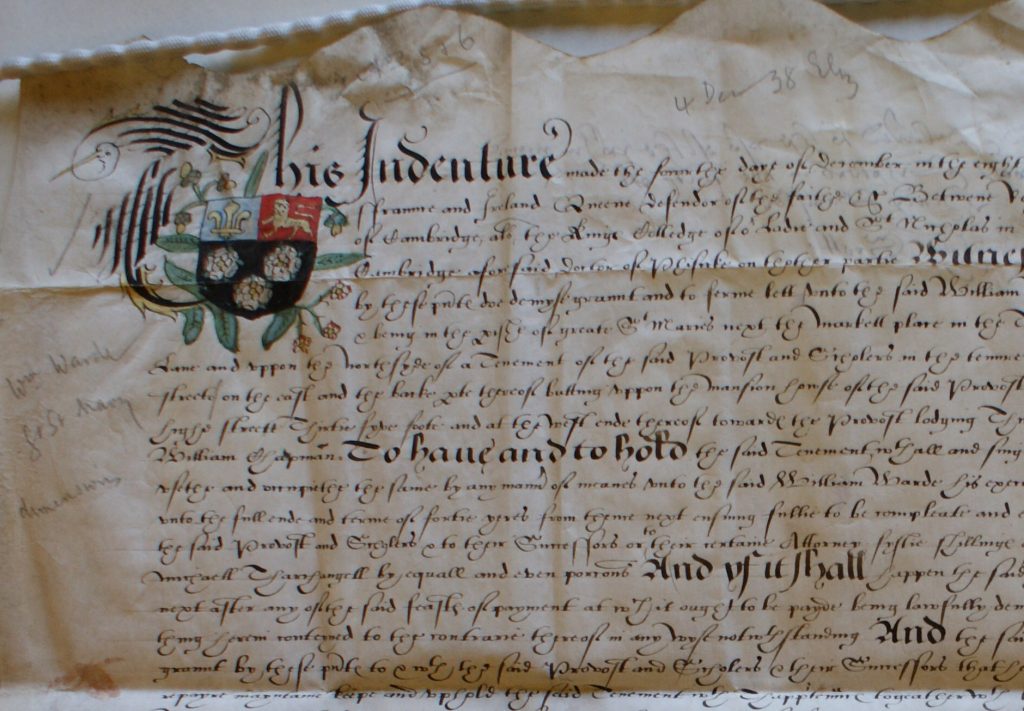 4 Dec 38 Eliz
This Indenture made the fourthe daye of december in the eight
ffraunce and Ireland Queene defendor of the faithe &c Betwene
of Cambridge, als the Kings Colledge of or Ladie and St Nicholas in
Cambridge aforesaid doctor of Phisicke on thother partie Witnes
by these pnts doe demyse graunt and to ferme lett unto the said William
& being in the pishe of great St Maries next the markett place in the T
Lane and uppon the northsyde of a Tenement of the said Provost and Schollers in the tenure
streete on the east and the backe pte thereof butting uppon the mansion house of the said Provost
highe streete Thirtie fyve foote and at the west ende thereof towards the Provost lodging
William Chapman. To have and to hold the said Tenement wth all and sing
use the and occupiethe the same by any mannr of meanes unto the said William Warde his execu
unto the full ende and terme of fortie yeres from thence next ensuing fullie to be compleate and
the said Provost and Schollers & to their Successors or to their certaine Attorney fyftie shillings
Michaell Tharchangell by equall and even porcons And yf it shall happen the said
next after any of the said feasts of payment at wch it ought to be payde being lawfully dem
thing herein conteyned to the contrarie thereof in any wyse notwthstanding And the said
graunt by these pnts to & wth the said Provost and Schollers & their Successors that he
repayre mayntaine keepe and uphold the said Tenement wth Thapptennces togeather wth
Wm Warde
Gt St Mary
dimensions